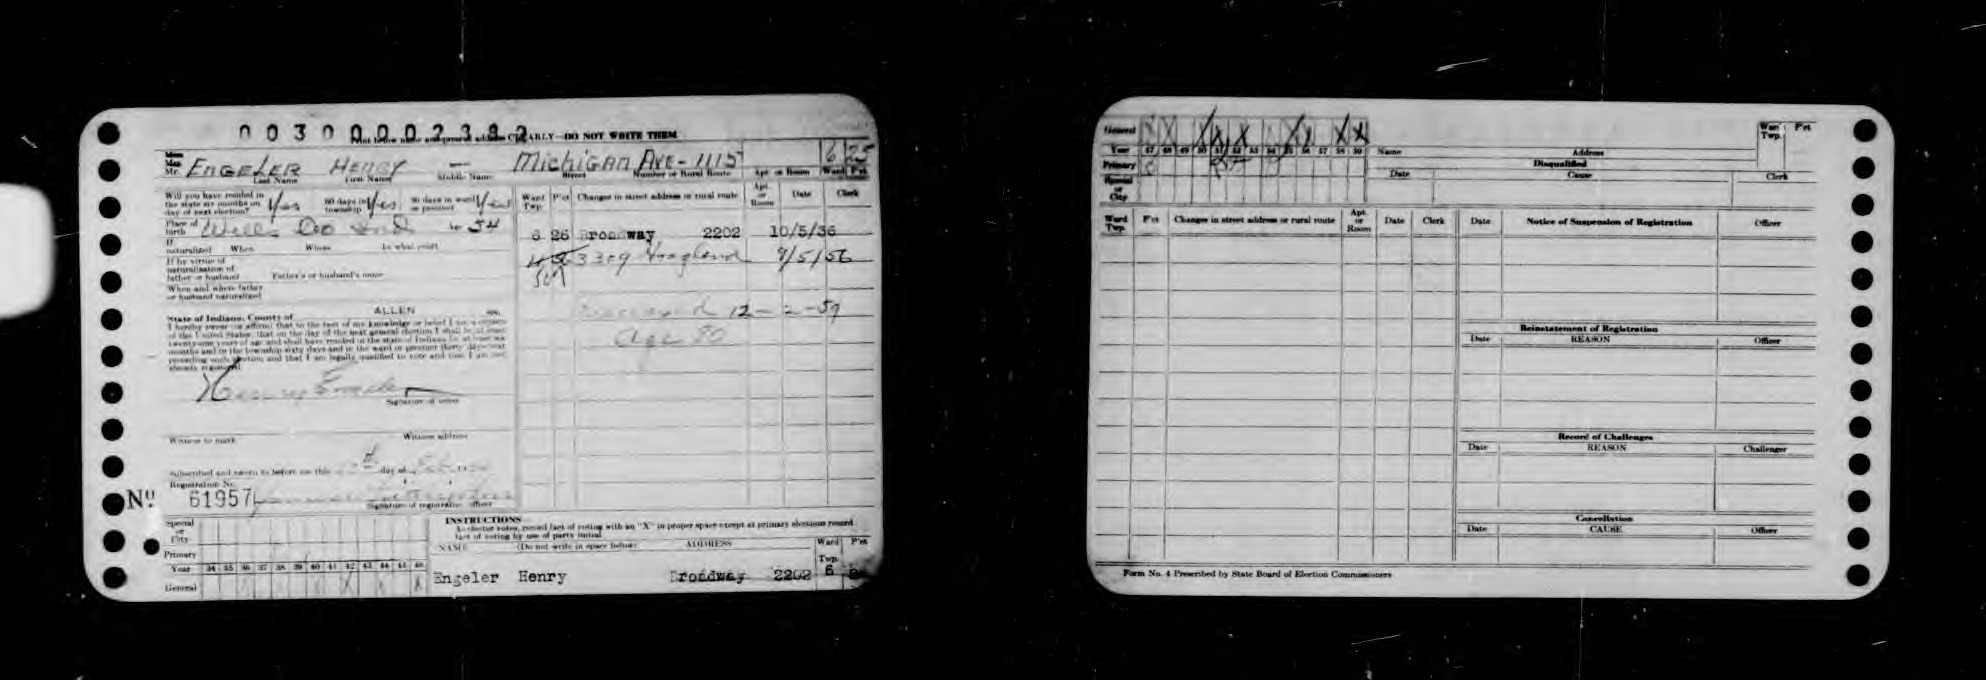 00300002382
CLEARLY—DO NOT WRITE THEM
Mr. ENGELER HENRY — Michigan Ave - 1115 6 25
Last Name First Name Middle Name Street Number or Rural Route Apt. or Room Ward P'ct
Will you have resided in the state six months on day of next election? Yes 60 days in township Yes 30 days in ward or precinct Yes
Place of birth Wells Co Ind Age 54
If naturalized When Where In what court
If by virtue of naturalization of father or husband Father's or husband's name
When and where father or husband naturalized
State of Indiana, County of ALLEN ss.
I hereby swear or affirm that to the best of my knowledge or belief I am a citizen
of the United States, that on the day of the next general election I shall be at least
twenty-one years of age and shall have resided in the state of Indiana for at least six
months and in the township sixty days and in the ward or precinct thirty days next
preceding such election and that I am legally qualified to vote and that I am not
already registered.
Henry Engeler
Signature of voter
Witness to mark Witness address
Subscribed and sworn to before me this day of
Registration No.
No. 61957
Signature of registration officer
Ward Twp. P'ct Changes in street address or rural route Apt. or Room Date Clerk
6 26 Broadway 2202 10/5/36
3309 Hoagland 9/5/56
12-2-59
age 80
Special or City
Primary
Year 34 35 36 37 38 39 40 41 42 43 44 45 46
General X X
INSTRUCTIONS
As elector votes, record fact of voting with an "X" in proper space except at primary elections record
fact of voting by use of party initial.
NAME (Do not write in space below) ADDRESS Ward Twp. P'ct
Engeler Henry Broadway 2202 6
General X X X X X X X X X
Year 47 48 49 50 51 52 53 54 55 56 57 58 59
Primary
Special or City
Name Address
Ward Twp. P'ct
Disqualified
Date Cause Clerk
Ward Twp. P'ct Changes in street address or rural route Apt. or Room Date Clerk
Date Notice of Suspension of Registration Officer
Reinstatement of Registration
Date REASON Officer
Record of Challenges
Date REASON Challenger
Cancellation
Date CAUSE Officer
Form No. 4 Prescribed by State Board of Election Commissioners